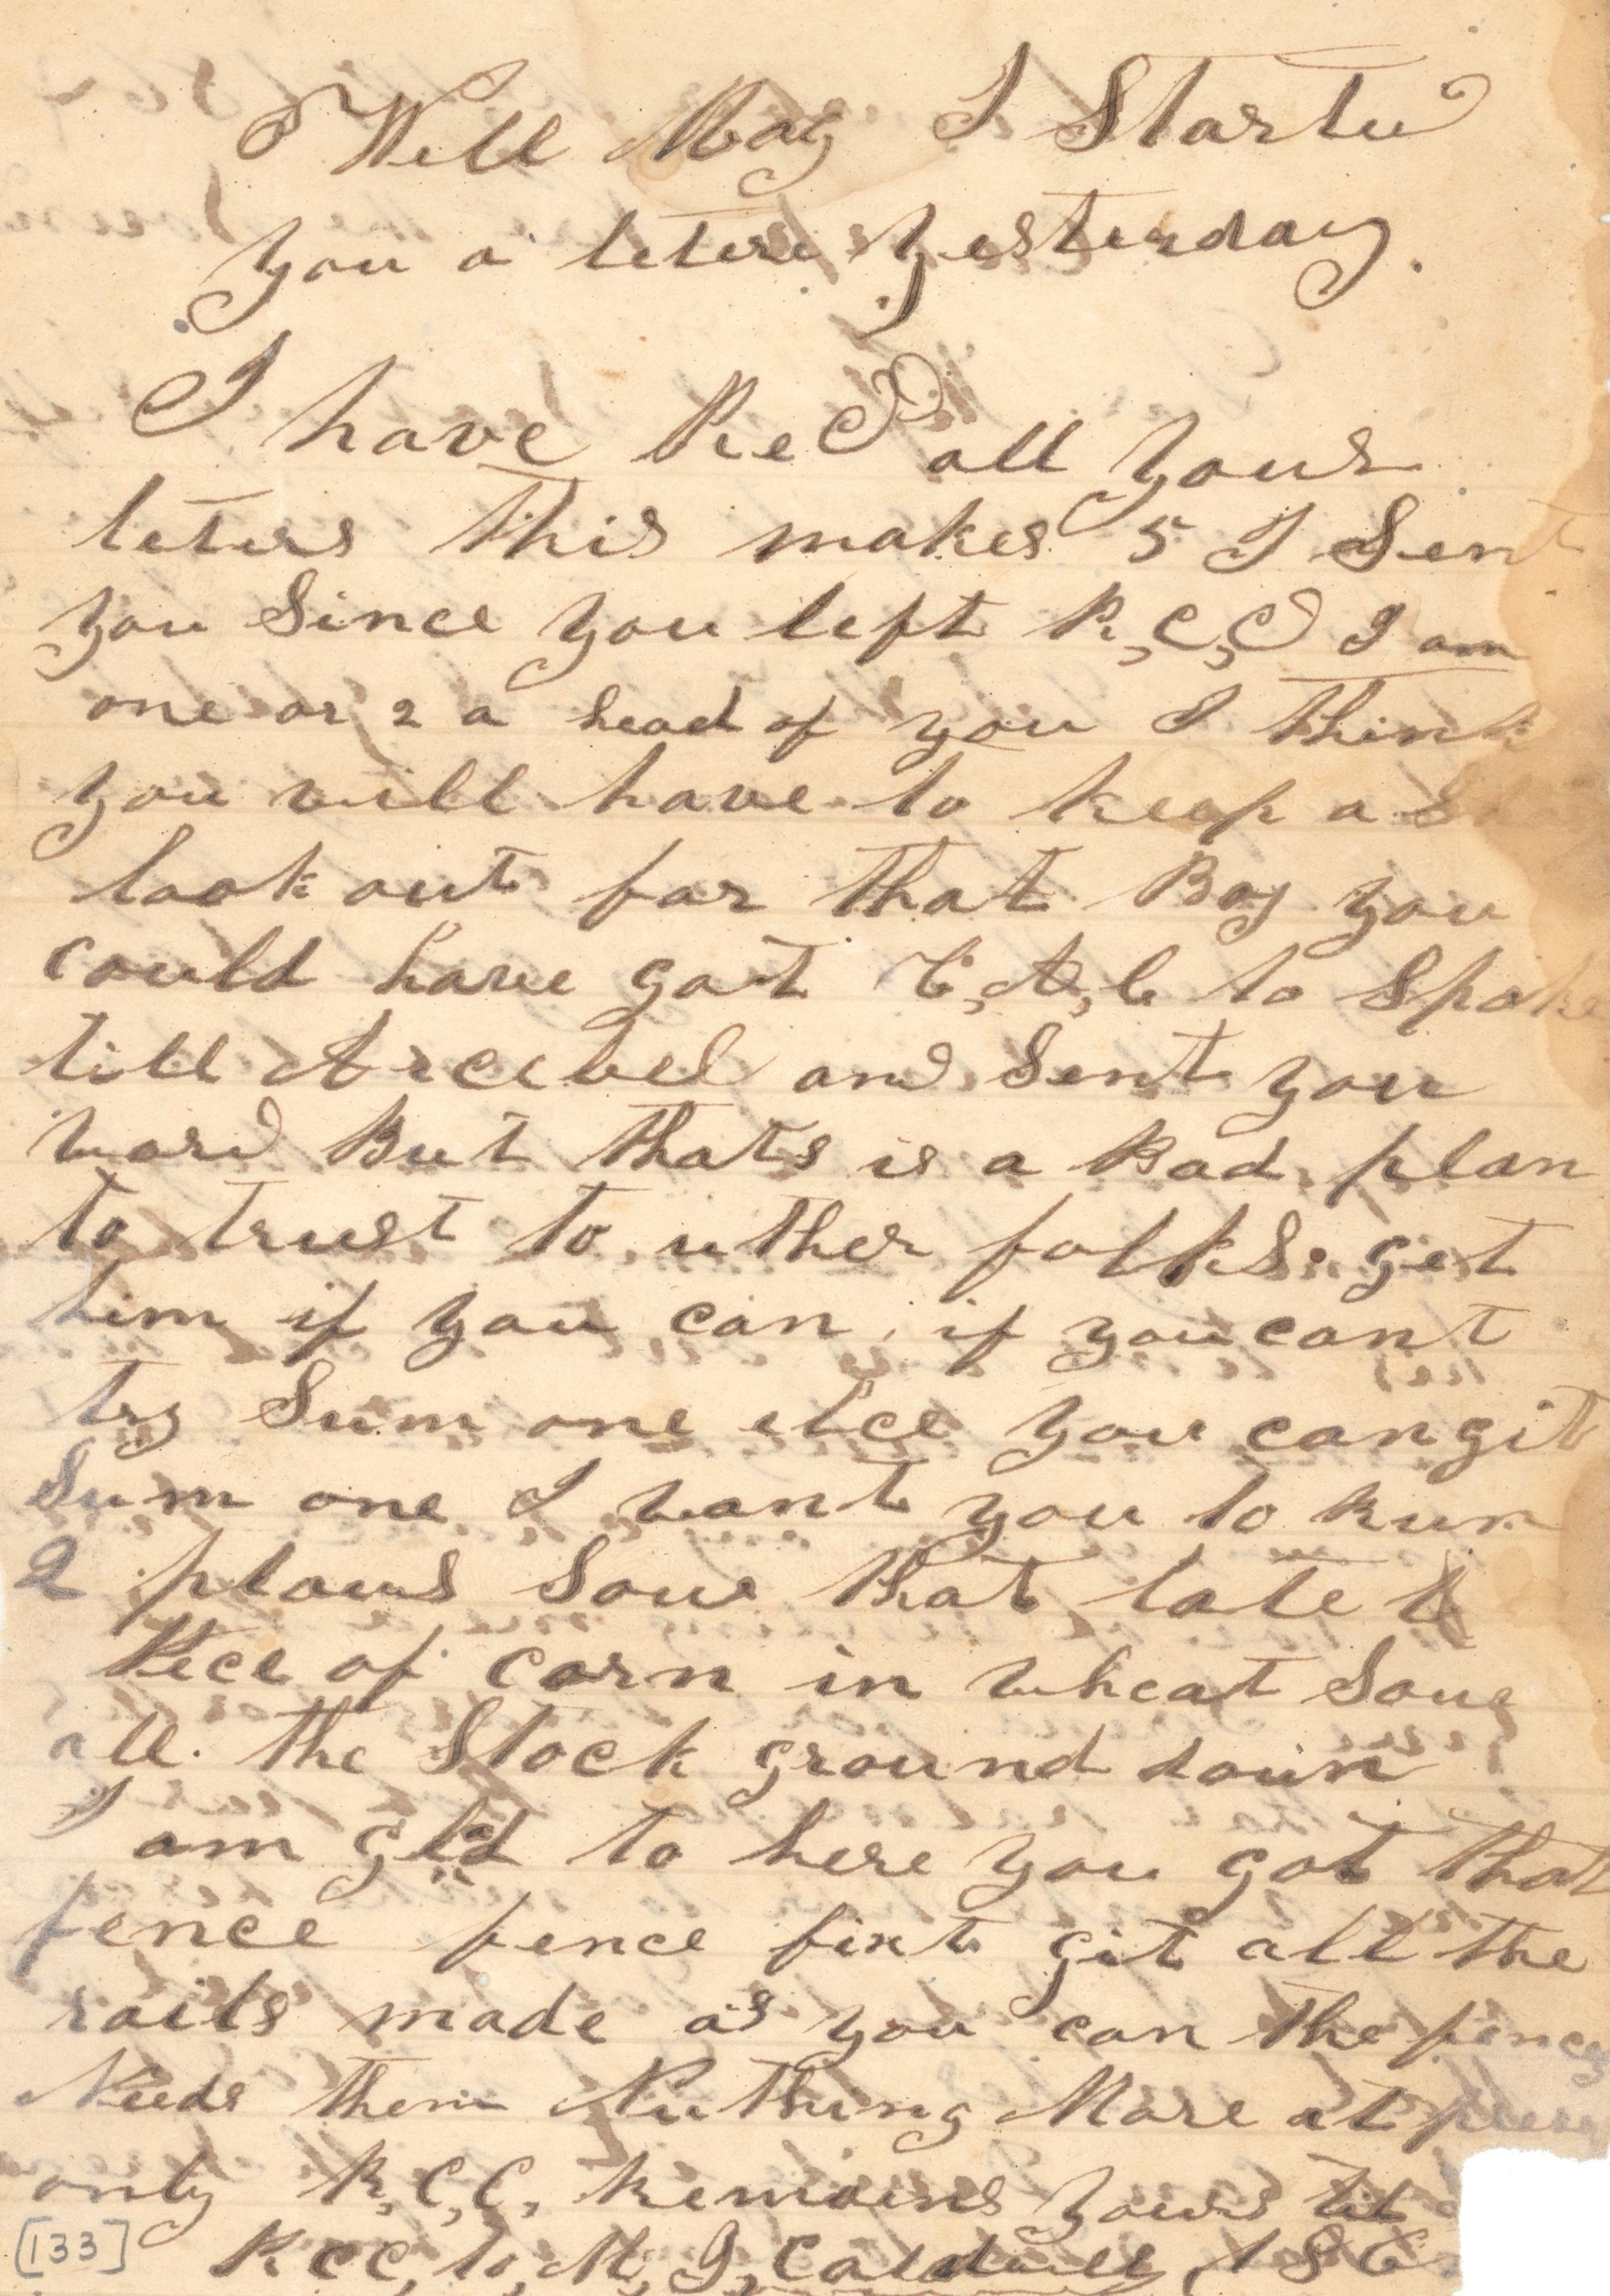 Well Mag I Started
you a leter yesterday.
I have Recd all your
leters This makes 5 I Sent
you Since you left R,C,C I am
one or 2 a head of you I Think
you will have to keap a
look out for That Boy you
could have got C,A,C to Spoke
till A recevel and Sent you
word But Thats is a Bad plan
to trust to uther folks get
him if you can. if you cant
try Sum one elce you can git
Sum one I want you to Run
2 plows Sow That late
Pece of corn in wheat Sow
all. The Stock ground down
I am glad to here you got That
fence fence fixt git all The
rails made as you can The fence
Needs Them Nuthing More at
only R,C,C, Remains yours til
RCC, to, M, J, Caldwell, 186
[133]